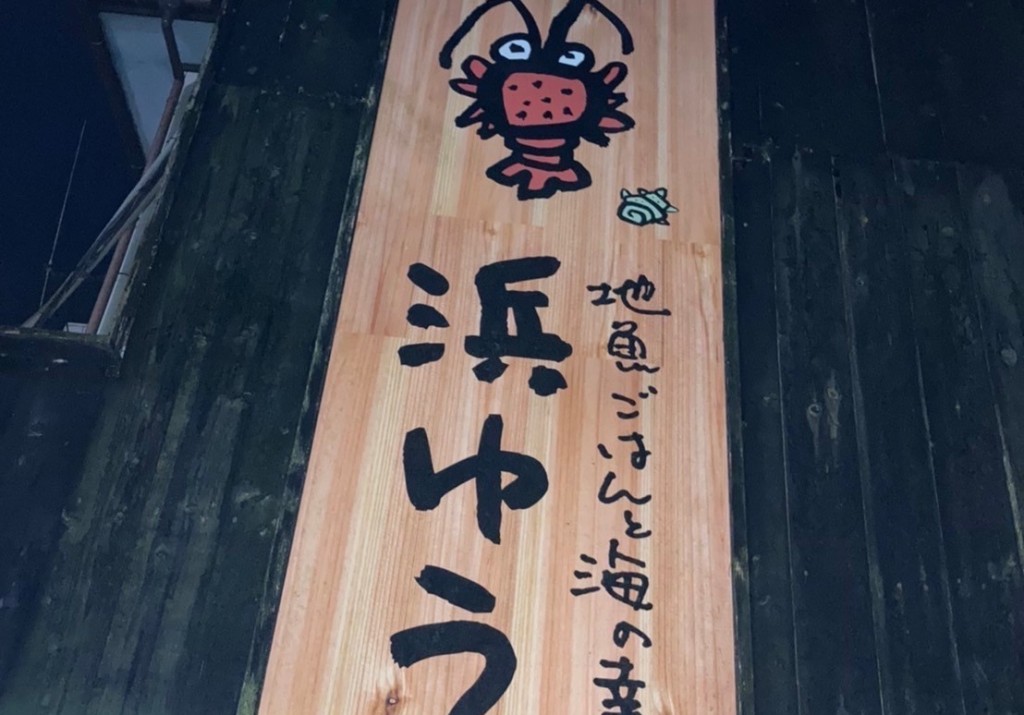 地魚ごはんと海の幸
浜ゆう